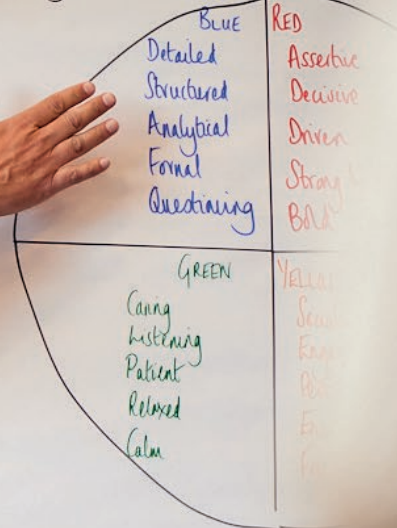 BLUE
Detailed
Structured
Analytical
Formal
Questining
RED
Assertive
Decisive
Driven
Strong
Bold
GREEN
Caring
Listening
Patient
Relaxed
Calm